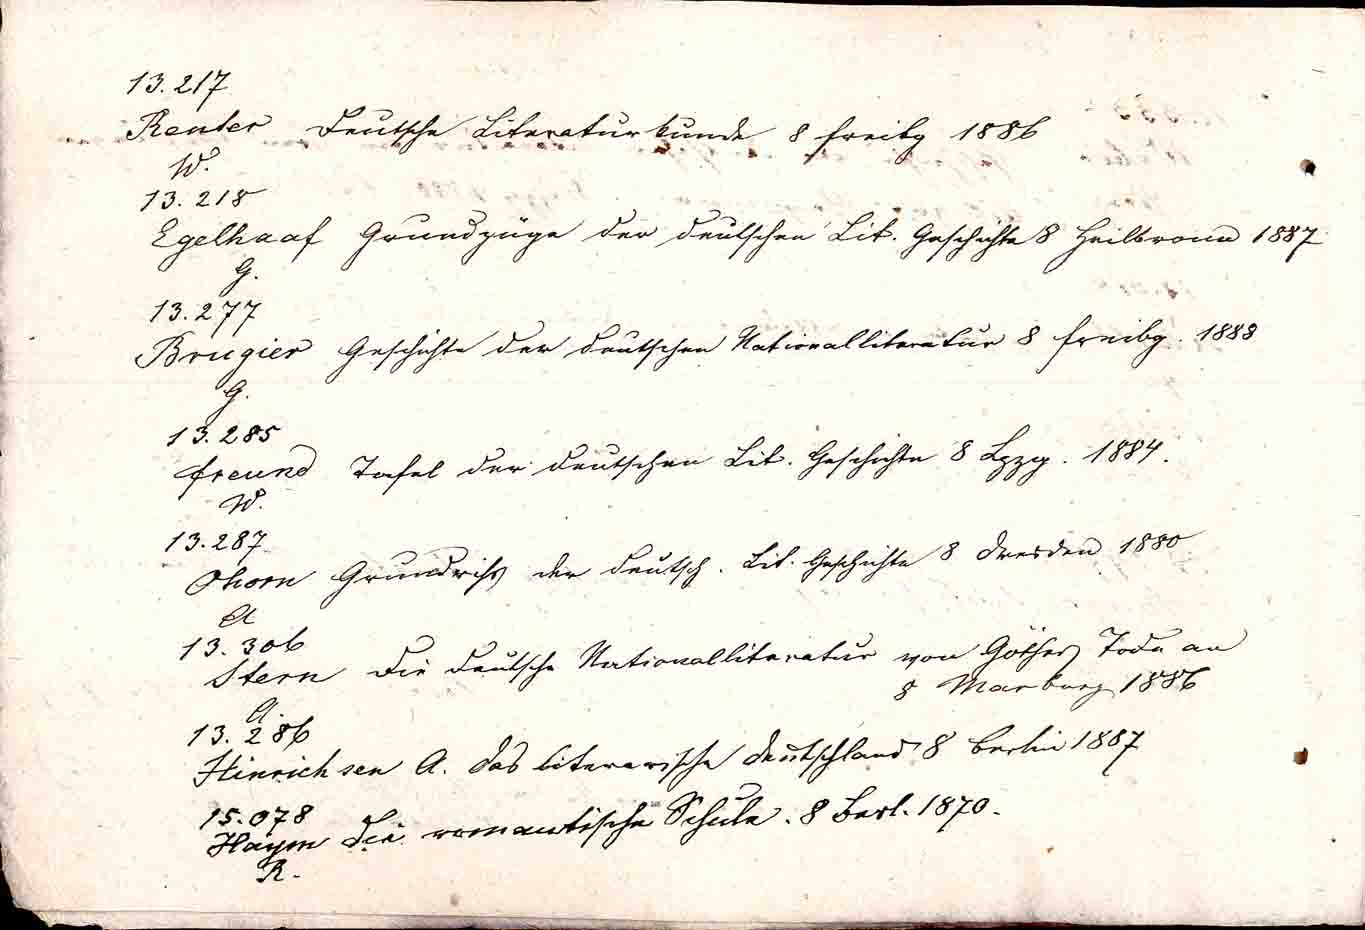 13.217
Reuter Deutsche Literaturkunde 8 Freibg 1886
W.
13.218
Egelhaaf Grundzüge der deutschen Lit. Geschichte 8 Heilbronn 1887
G.
13.277
Brugier Geschichte der deutschen Nationalliteratur 8 Freibg. 1888
G.
13.285
Freund Tafel der deutschen Lit. Geschichte 8 Lpzg. 1884.
W.
13.287
Ohorn Grundriß der deutsch. Lit. Geschichte 8 Dresden 1880
A
13.306
Stern Die deutsche Nationalliteratur von Göthes Tode an
8 Marburg 1886
A.
13.286
Hinrichsen A. Das literarische Deutschland 8 Berlin 1887
15.078
Haym Die romantische Schule. 8 Berl. 1870.
R.